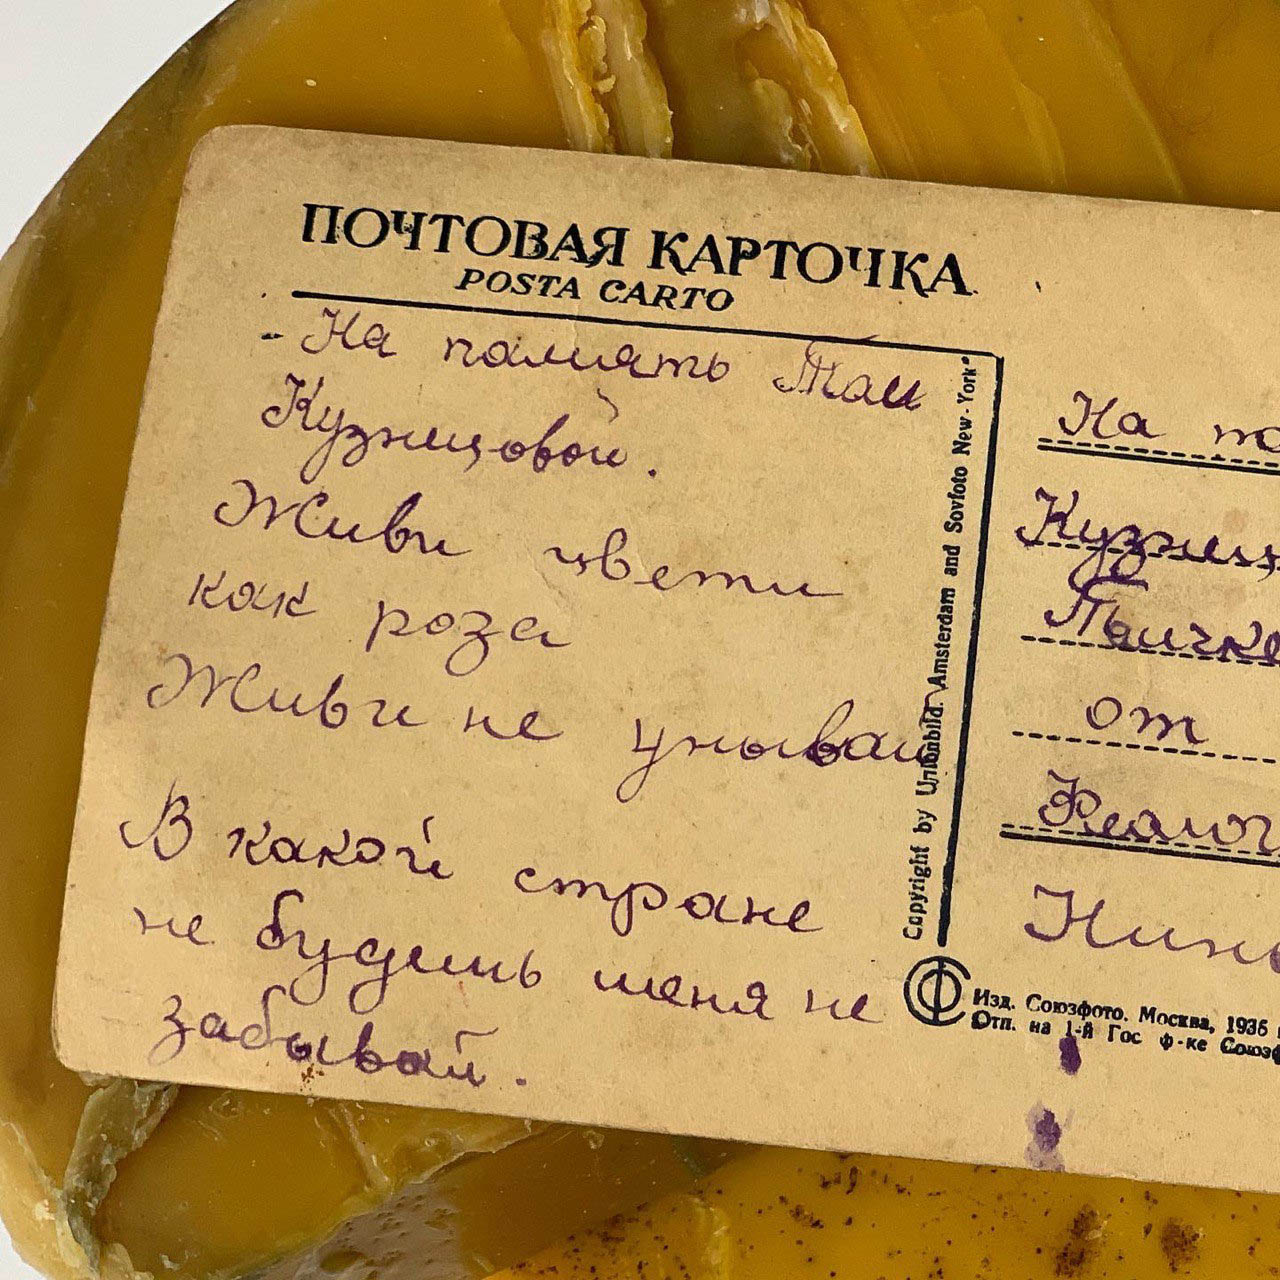 ПОЧТОВАЯ КАРТОЧКА
POSTA CARTO
На память Таи
Кузнецовой.
Живи цвети
как роза
Живи не унывай
В какой стране
не будешь меня не
забывай.
Copyright by Unionbild. Amsterdam and Sovfoto New-York
На па
Кузнец
Таичке
от
Нины
Изд. Союзфото. Москва, 1935
Отп. на 1-й Гос ф-ке Союзф